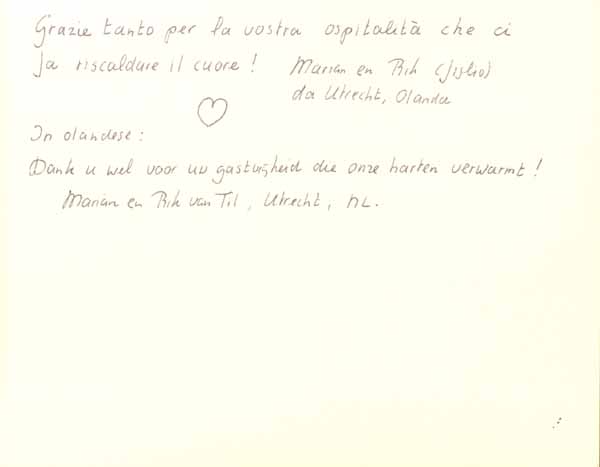 Grazie tanto per la vostra ospitalità che ci
fa riscaldare il cuore! Marian en Rik (figlio)
da Utrecht, Olanda
In olandese:
Dank u wel voor uw gastvrijheid die onze harten verwarmt!
Marian en Rik van Til, Utrecht, NL.